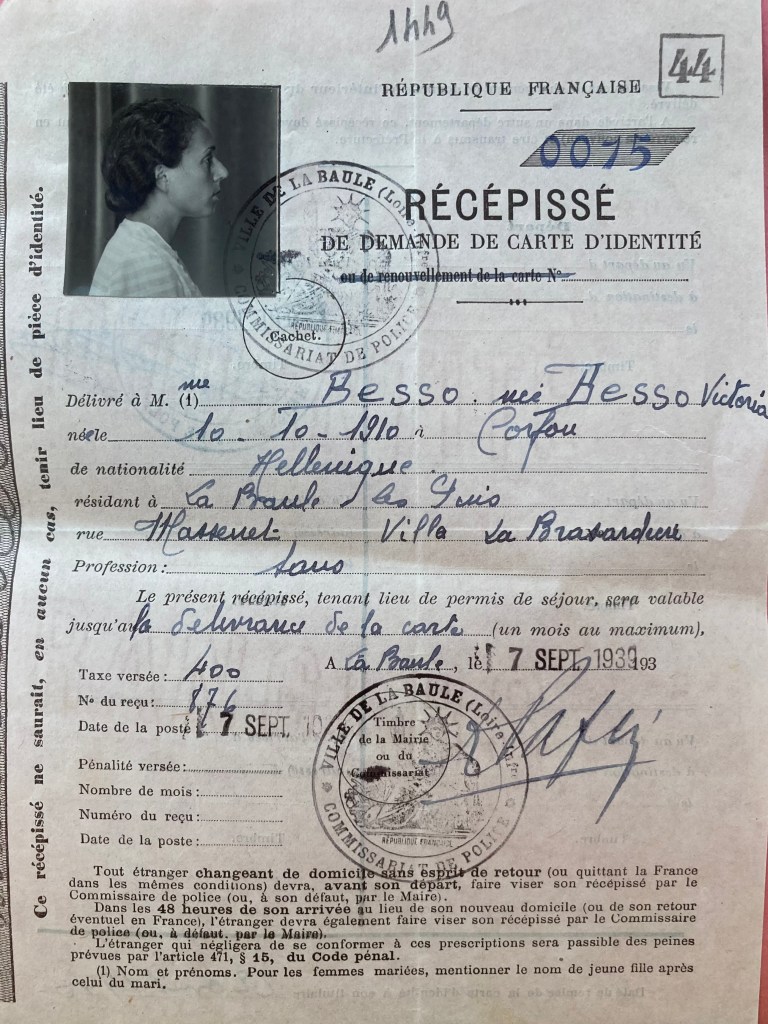 1449
44
RÉPUBLIQUE FRANÇAISE
0075
RÉCÉPISSÉ
DE DEMANDE DE CARTE D'IDENTITÉ
ou de renouvellement de la carte No
VILLE DE LA BAULE (Loire-Infre)
COMMISSARIAT DE POLICE
RÉPUBLIQUE FRANÇAISE
Cachet.
Délivré à M. (1) me Besso née Besso Victoria
né le 10-10-1910 à Corfou
de nationalité Hellenique.
résidant à La Baule les Pins
rue Massenet, Villa La
Profession: sans
Le présent récépissé, tenant lieu de permis de séjour, sera valable
jusqu'au la delivrance de la carte (un mois au maximum),
A La Baule, le 7 SEPT. 1939 193
Taxe versée: 400
No du reçu: 176
Date de la poste 7 SEPT.
Pénalité versée:
Nombre de mois:
Numéro du reçu:
Date de la poste:
VILLE DE LA BAULE (Loire-Infre)
COMMISSARIAT DE POLICE
RÉPUBLIQUE FRANÇAISE
Timbre
de la Mairie
ou du
Commissariat
Tout étranger changeant de domicile sans esprit de retour (ou quittant la France
dans les mêmes conditions) devra, avant son départ, faire viser son récépissé par le
Commissaire de police (ou, à son défaut, par le Maire).
Dans les 48 heures de son arrivée au lieu de son nouveau domicile (ou de son retour
éventuel en France), l'étranger devra également faire viser son récépissé par le Commissaire
de police (ou, à défaut, par le Maire).
L'étranger qui négligera de se conformer à ces prescriptions sera passible des peines
prévues par l'article 471, § 15, du Code pénal.
(1) Nom et prénoms. Pour les femmes mariées, mentionner le nom de jeune fille après
celui du mari.
Ce récépissé ne saurait, en aucun cas, tenir lieu de pièce d'identité.